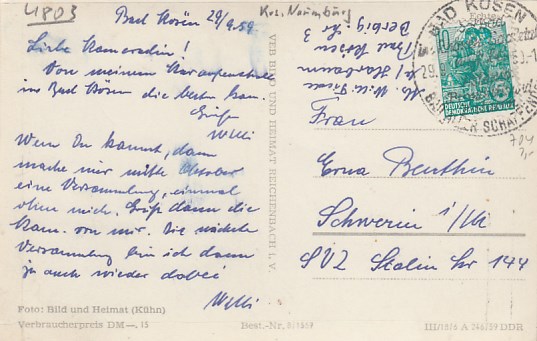 4803
Bad Kösen 29/9.59
Krs. Naumburg
Liebe Kameradin!
Von meinem
in Bad Kösen die besten kam.
Grüße
Willi
Wenn Du kannst, dann
mache mir mitte Oktober
eine Versammlung, einmal
ohne mich. Grüß dann die
Kam. von mir. Die nächste
Versammlung bin ich dann
ja auch wieder dabei
Willi
Foto: Bild und Heimat (Kühn)
Verbraucherpreis DM —.15
Best.-Nr.
VEB BILD UND HEIMAT REICHENBACH I. V.
Bad Kösen 3
BAD KÖSEN
29.
10
DEUTSCHE
DEMOKRATISCHE REPUBLIK
Frau
Erna Benthin
Schwerin i/M
SVZ Stalin Str 144
704
III/18/6 A 246/59 DDR